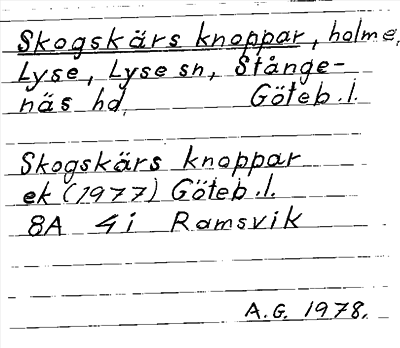 Skogskärs knoppar, holme,
Lyse, Lyse sn, Stånge-
näs hd, Göteb.l.
Skogskärs knoppar
ek (1977) Göteb.l.
8A 4i Ramsvik
A.G. 1978.